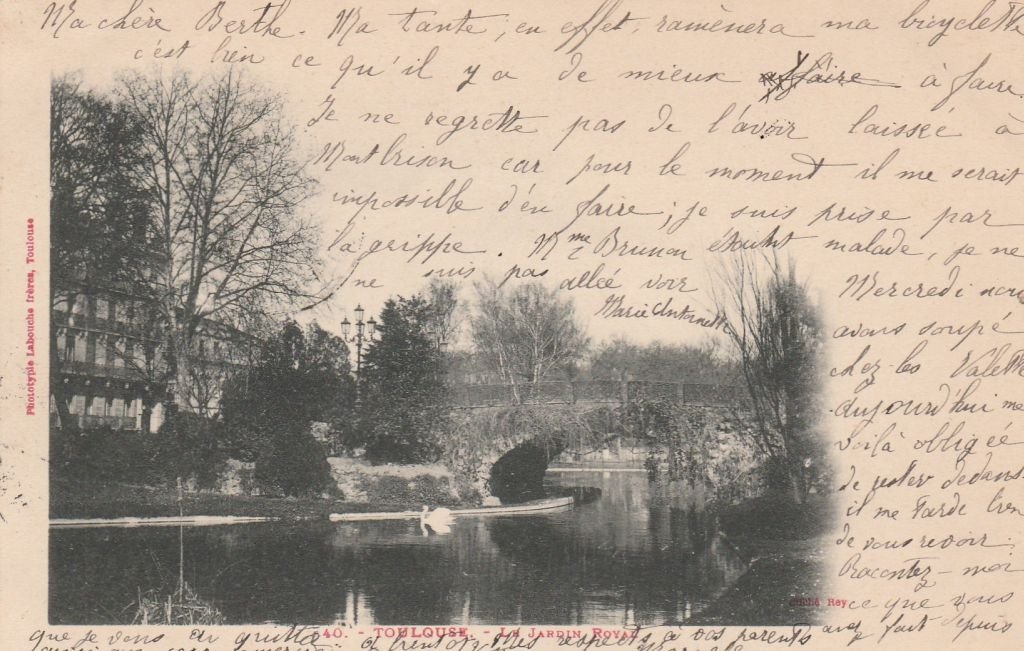 Ma chère Berthe. Ma tante, en effet, ramènera ma bicyclette
c'est bien ce qu'il y a de mieux affaire à faire.
Je ne regrette pas de l'avoir laissée à
Montbrison car pour le moment il me serait
impossible d'en faire; je suis prise par
la grippe. Mme Brunon étant malade, je ne
suis pas allée voir
Marie Antoinette
Mercredi nous
avons soupé
chez les Valette
aujourd'hui me
voilà obligée
de rester dedans
il me tarde bien
de vous revoir.
Racontez-moi
ce que vous
avez fait depuis
que je vous ai quitté
mes respects à vos parents
Phototypie Labouche frères, Toulouse
Cliché Rey
40. - TOULOUSE. - LE JARDIN ROYAL